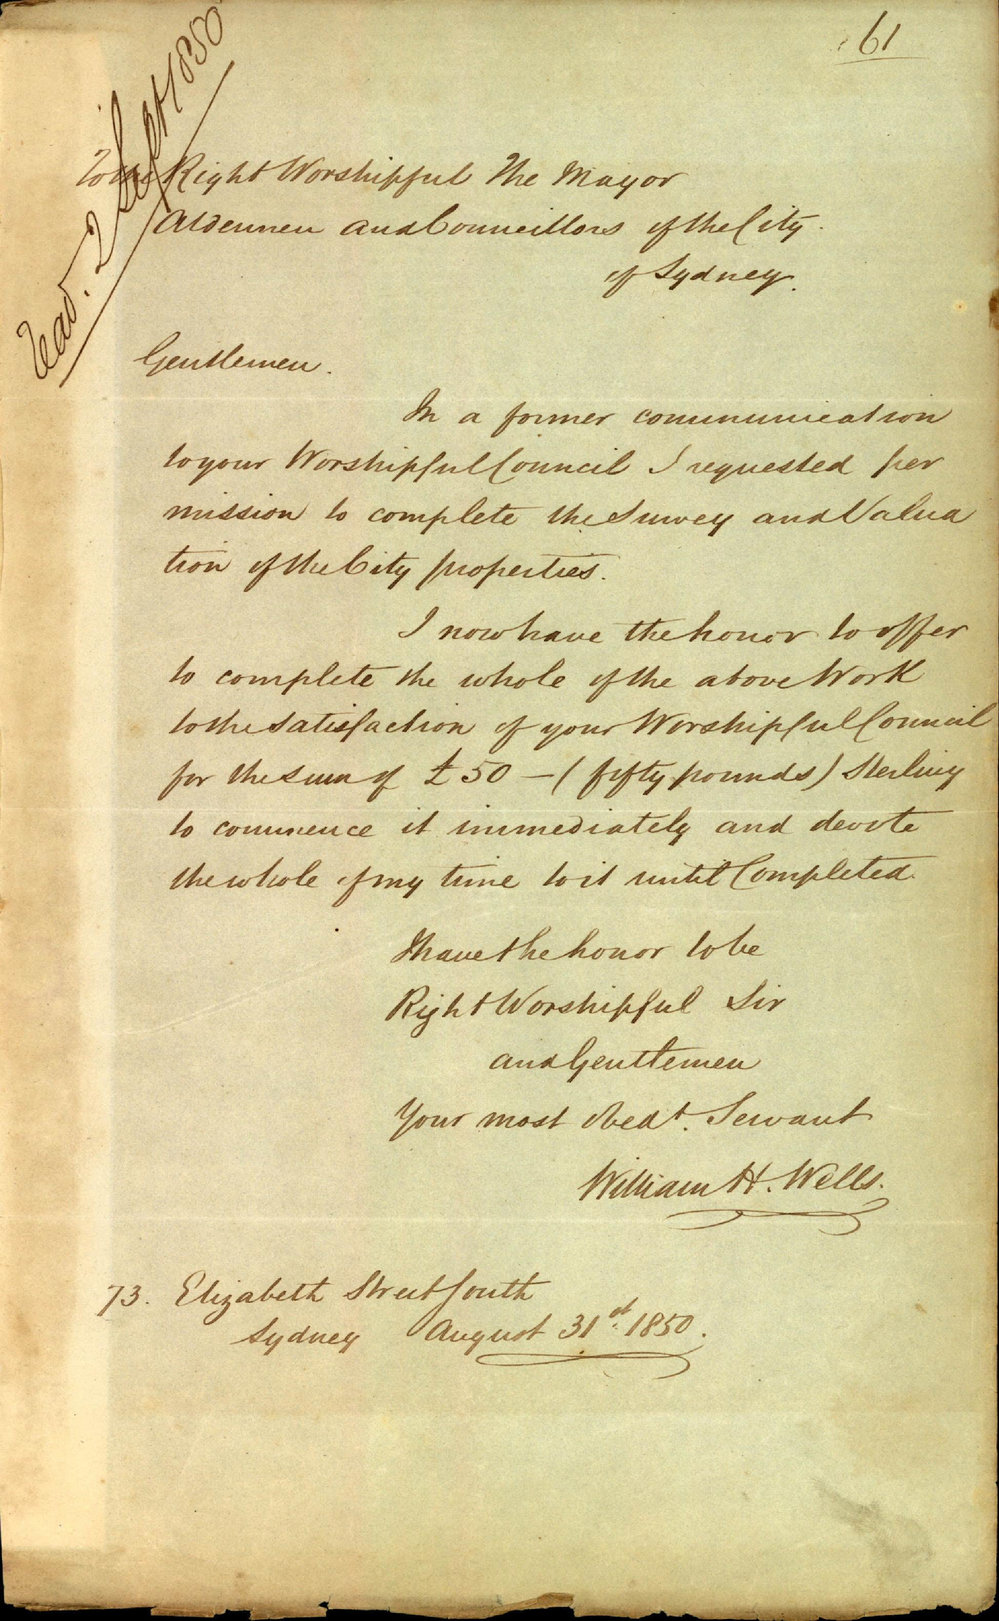 61
Read. 2 Sept 1850
To the Right Worshipful The Mayor
Aldermen and Councillors of the City
of Sydney.
Gentlemen.
In a former communication
to your Worshipful Council I requested per
mission to complete the Survey and Valua
tion of the City properties.
I now have the honor to offer
to complete the whole of the above Work
to the satisfaction of your Worshipful Council
for the sum of £50 — (fifty pounds) Sterling
to commence it immediately and devote
the whole of my time to it until Completed.
I have the honor to be
Right Worshipful Sir
and Gentlemen
Your most Obedt. Servant
William H. Wells.
73. Elizabeth Street South
Sydney August 31st. 1850.